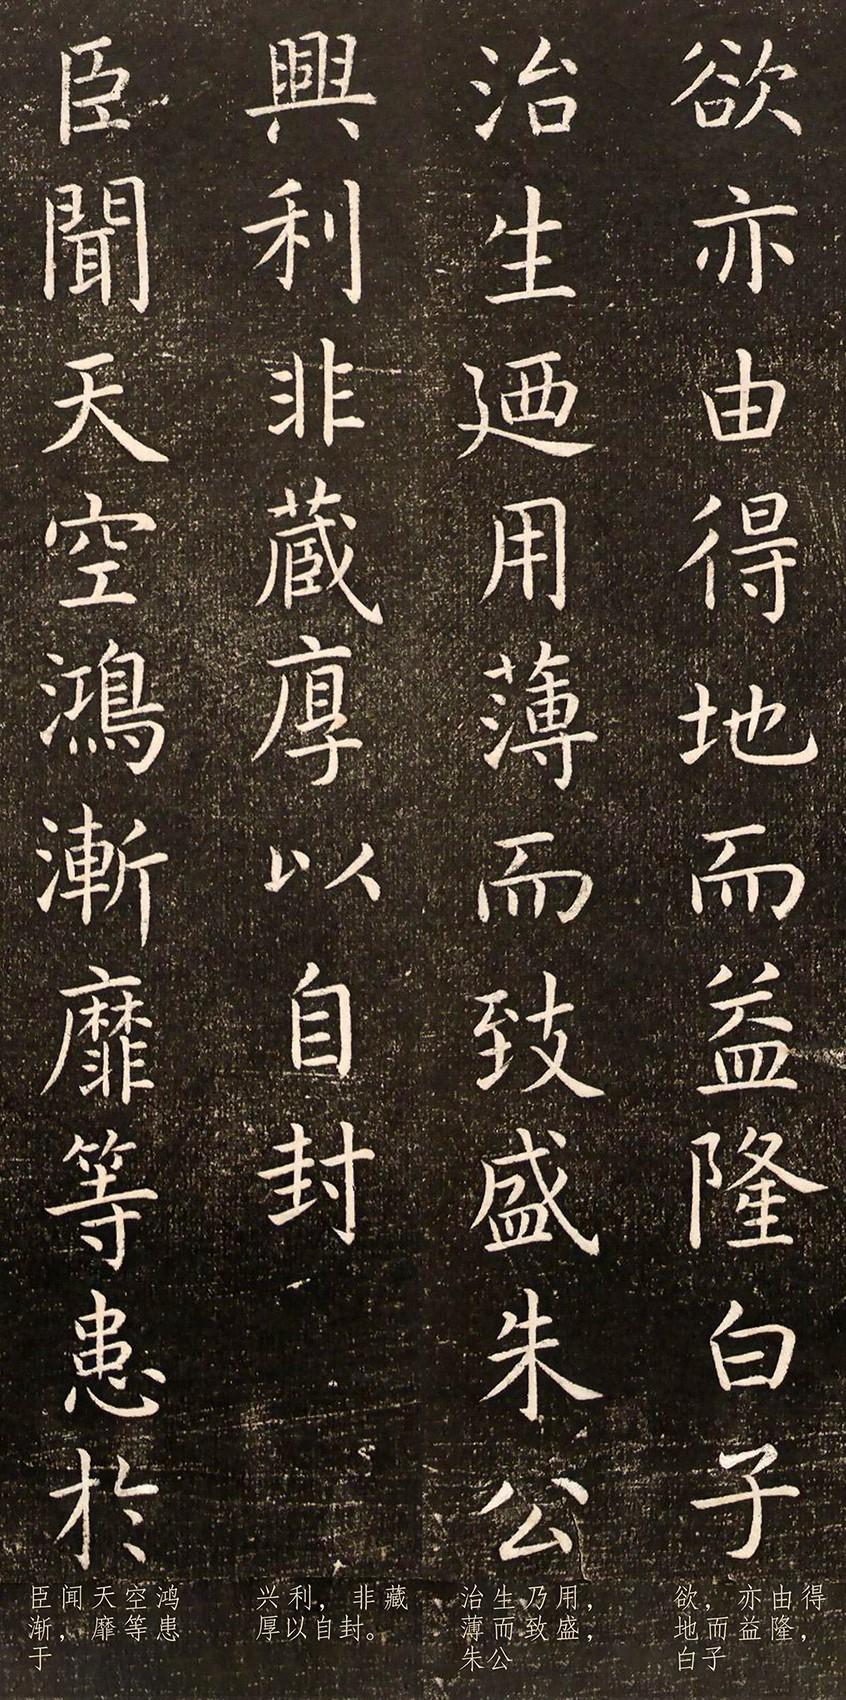 欲亦由得地而益隆白子
治生廼用薄而致盛朱公
興利非蔵厚以自封
臣聞天空鴻漸靡等患於
欲，亦由得
地而益隆，
白子
治生乃用，
薄而致盛，
朱公
兴利，非藏
厚以自封。
臣闻天空鸿
渐，靡等患
于